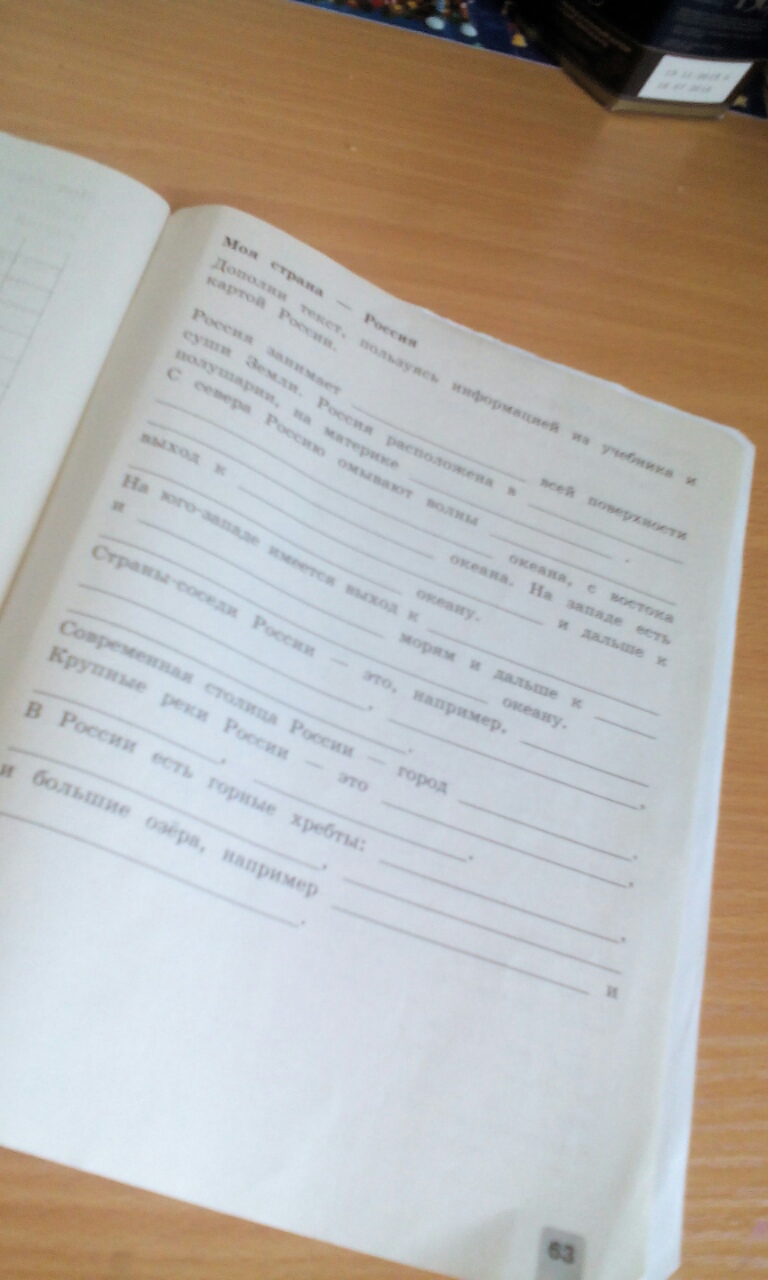 Моя страна — Россия
Дополни текст, пользуясь информацией из учебника и
картой России.
Россия занимает всей поверхности
суши Земли. Россия расположена в
полушарии, на материке .
С севера Россию омывают волны
океана, с востока
океана. На западе есть
выход к и дальше к
океану.
На юго-западе имеется выход к
и морям и дальше к
океану.
Страны-соседи России — это, например,
, ,
.
Современная столица России — город .
Крупные реки России — это ,
, .
В России есть горные хребты: ,
,
и большие озёра, например и
.
63